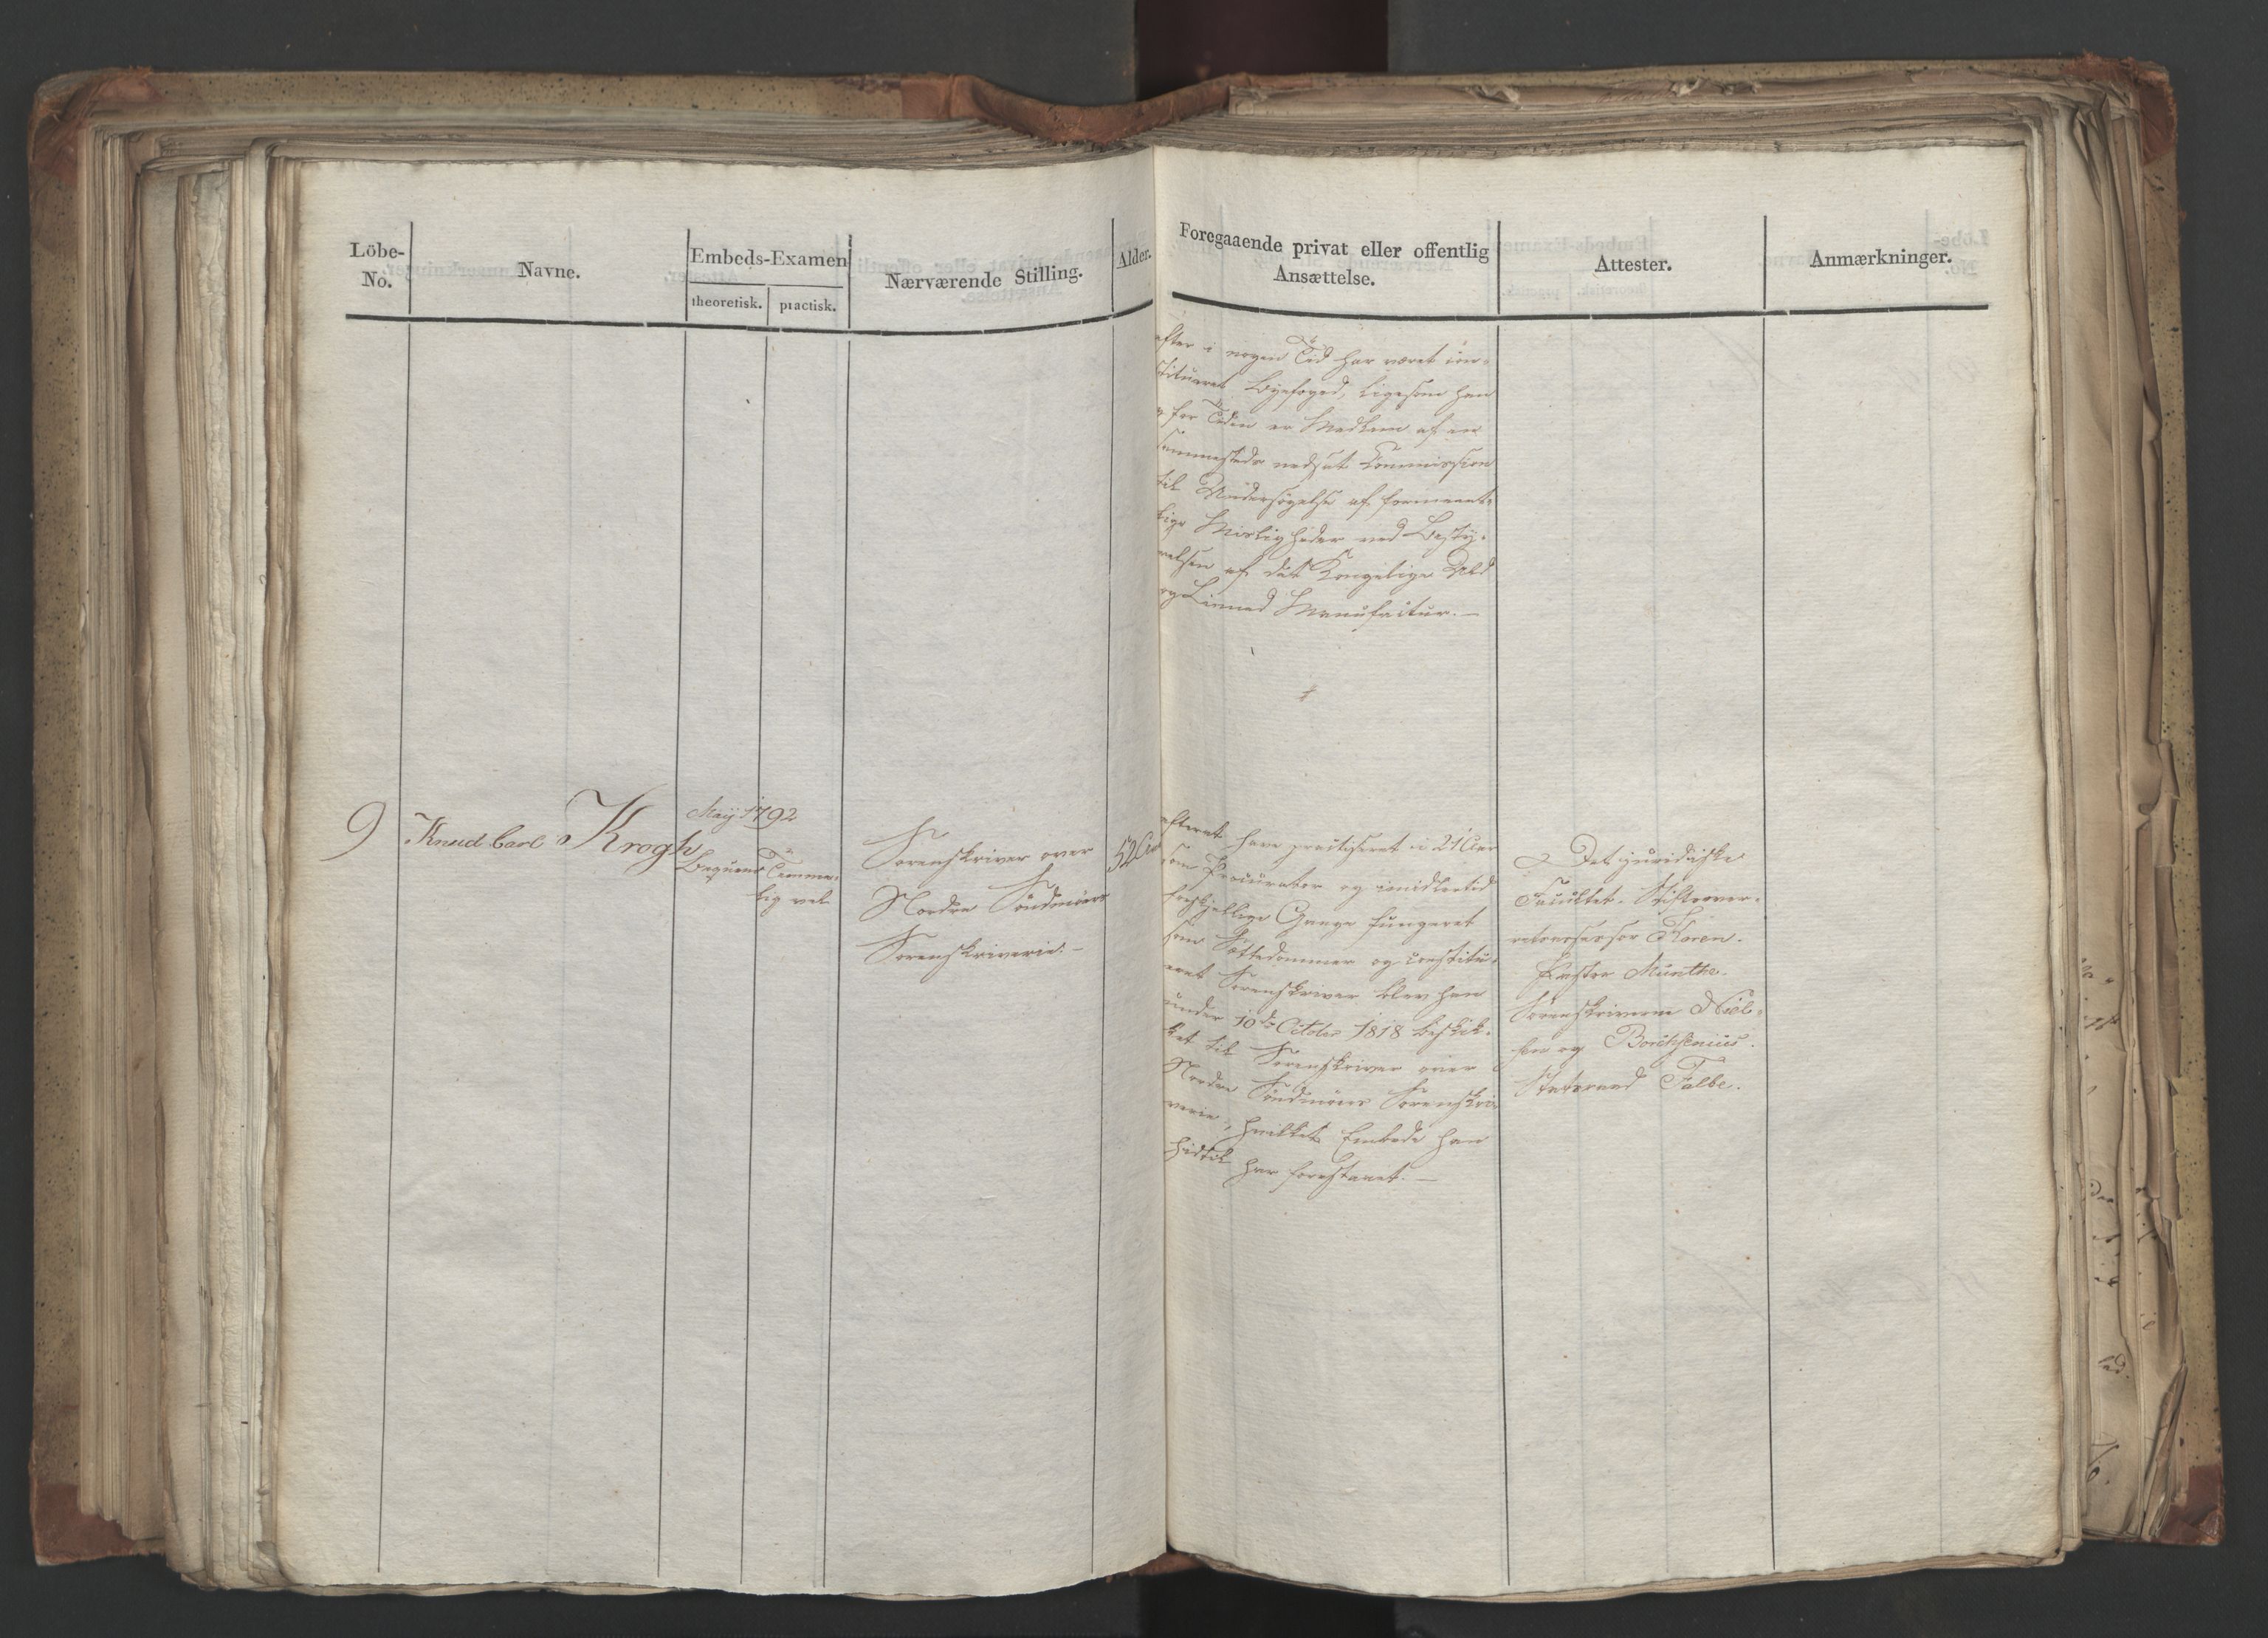 Löbe-
No.
Navne.
Embeds-Examen
theoretisk.
practisk.
Nærværende Stilling.
Alder.
Foregaaende privat eller offentlig
Ansættelse.
Attester.
Anmærkninger.
efter i nogen Tid har været con-
stitueret Byefoged, ligesom han
for Tiden er Medlem af en
sammesteds nedsat Commission
til Undersøgelse af formeent-
lige Misligheder ved Besty-
relsen af det Kongelige Uld
og Linned Manufactur. —
9
Knud Carl Krogh
May 1792
Beqvem
Temme-
lig vel
Sorenskriver over
Nordre Søndmørs
Sorenskriverie. —
52 Aar
efterat have practiseret i 21 Aar
som Procurator og imidlertid
forskjellige Gange fungeret
som Sættedommer og constitu-
eret Sorenskriver blev han
under 10de October 1818 beskik-
ket til Sorenskriver over
Nordre Søndmørs Sorenskri-
verie, hvilket Embede han
hidtil har forestaaet. —
Det juridiske
Facultet. Stiftsover-
retsassessor Koren.
Pastor Münthe.
Sorenskriverne Niel-
sen og Borchsenius.
Statsraad Falbe.